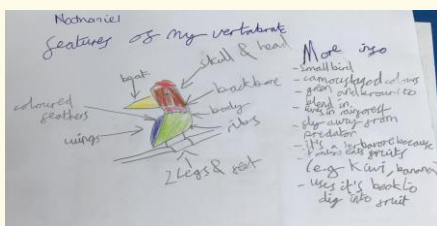 Nathaniel
features of my vertabrate
skull & head
beak
backbone
coloured
feathers
body
ribs
wings
2 legs & feet
More info
- small bird
- camouflaged colours
- green and
blend in
- lives in rainforest
- fly away from
predator
- it's a because
eats fruits
(e.g Kiwi, banana
- uses it's beak to
dig into fruit